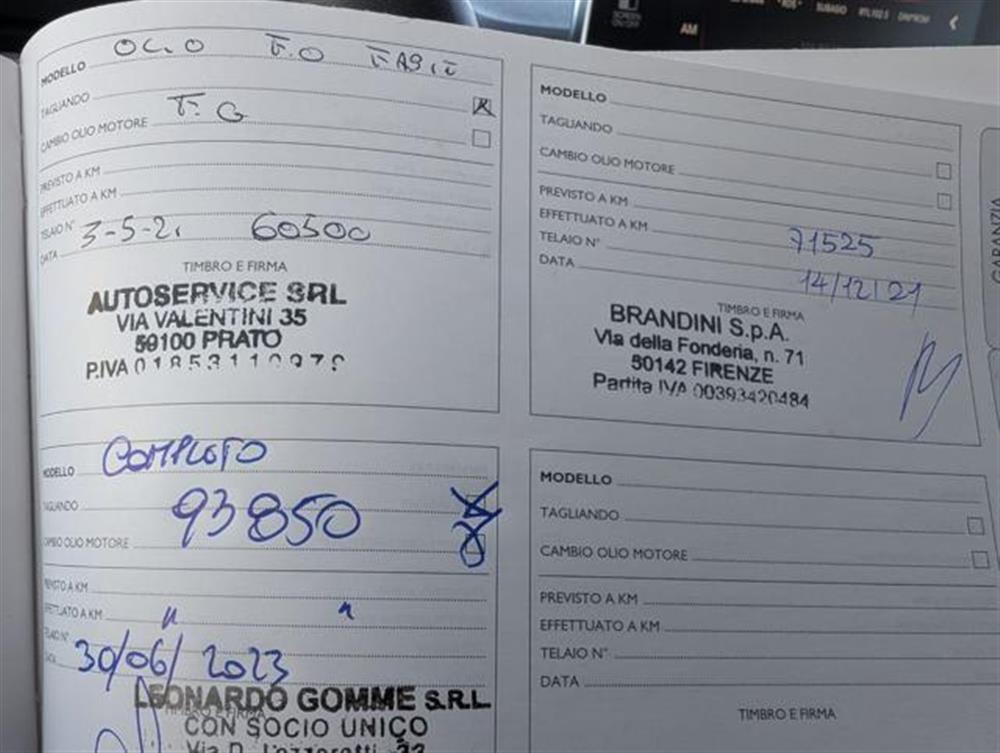 AM
MODELLO OLIO F.O
TAGLIANDO F.G
CAMBIO OLIO MOTORE
PREVISTO A KM
EFFETTUATO A KM
TELAIO N° 3-5-21 60500
DATA
TIMBRO E FIRMA
AUTOSERVICE SRL
VIA VALENTINI 35
59100 PRATO
P.IVA 01853110979
MODELLO
TAGLIANDO
CAMBIO OLIO MOTORE
PREVISTO A KM
EFFETTUATO A KM 71525
TELAIO N°
DATA 14/12/21
TIMBRO E FIRMA
BRANDINI S.p.A.
Via della Fonderia, n. 71
50142 FIRENZE
Partita IVA 00393420484
GARANZIA
MODELLO COMPLETO
TAGLIANDO 93850
CAMBIO OLIO MOTORE
PREVISTO A KM
EFFETTUATO A KM " "
TELAIO N°
DATA 30/06/2023
TIMBRO E FIRMA
LEONARDO GOMME S.R.L.
CON SOCIO UNICO
MODELLO
TAGLIANDO
CAMBIO OLIO MOTORE
PREVISTO A KM
EFFETTUATO A KM
TELAIO N°
DATA
TIMBRO E FIRMA